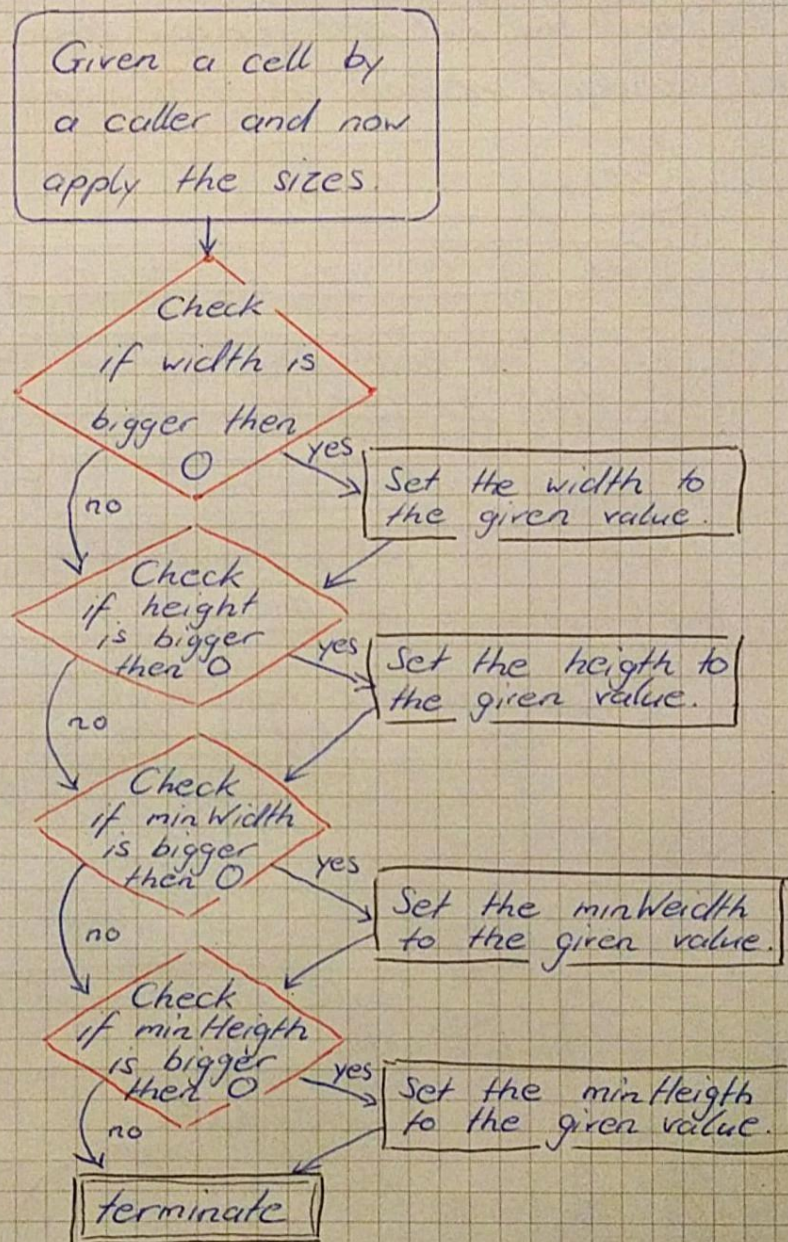 Given a cell by
a caller and now
apply the sizes.
Check
if width is
bigger then
0
yes
no
Set the width to
the given value.
Check
if height
is bigger
then 0
yes
no
Set the heigth to
the given value.
Check
if minWidth
is bigger
then 0
yes
no
Set the minWeidth
to the given value.
Check
if minHeigth
is bigger
then 0
yes
no
Set the minHeigth
to the given value.
terminate